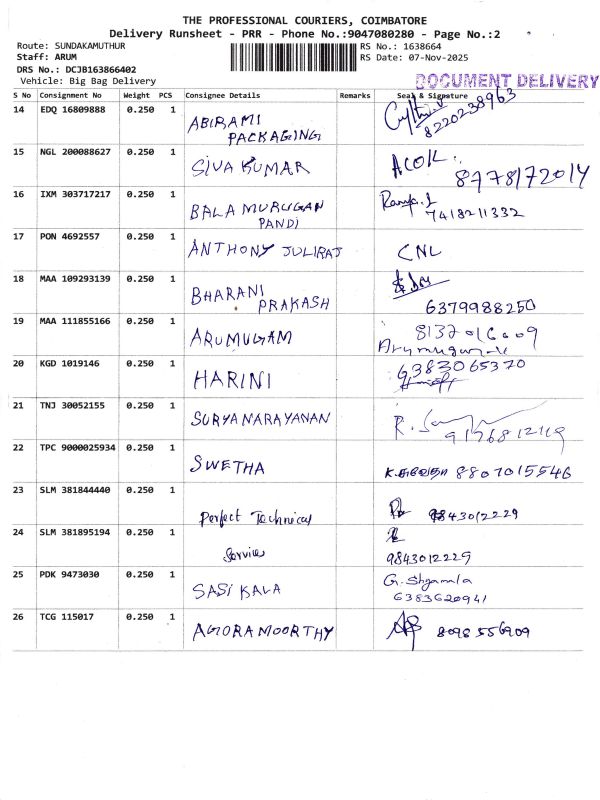 THE PROFESSIONAL COURIERS, COIMBATORE
Delivery Runsheet - PRR - Phone No.:9047080280 - Page No.:2
Route: SUNDAKAMUTHUR
RS No.: 1638664
Staff: ARUM
RS Date: 07-Nov-2025
DRS No.: DCJB163866402
Vehicle: Big Bag Delivery
DOCUMENT DELIVERY
S No Consignment No Weight PCS Consignee Details Remarks Seal & Signature
14 EDQ 16809888 0.250 1 ABIRAMI
PACKAGING 8220238963
15 NGL 200088627 0.250 1 SIVA KUMAR
8778172014
16 IXM 303717217 0.250 1 BALA MURUGAN
PANDI 7418211332
17 PON 4692557 0.250 1 ANTHONY JULIRAJ CNL
18 MAA 109293139 0.250 1 BHARANI
PRAKASH 6379988250
19 MAA 111855166 0.250 1 ARUMUGAM
20 KGD 1019146 0.250 1 HARINI 6383065370
21 TNJ 30052155 0.250 1 SURYANARAYANAN
22 TPC 9000025934 0.250 1 SWETHA 8807015546
23 SLM 381844440 0.250 1
Perfect Technical 9843012229
24 SLM 381895194 0.250 1
Service 9843012229
25 PDK 9473030 0.250 1 SASI KALA G. Shyamala
6383620941
26 TCG 115017 0.250 1 AGORAMOORTHY 8098556909